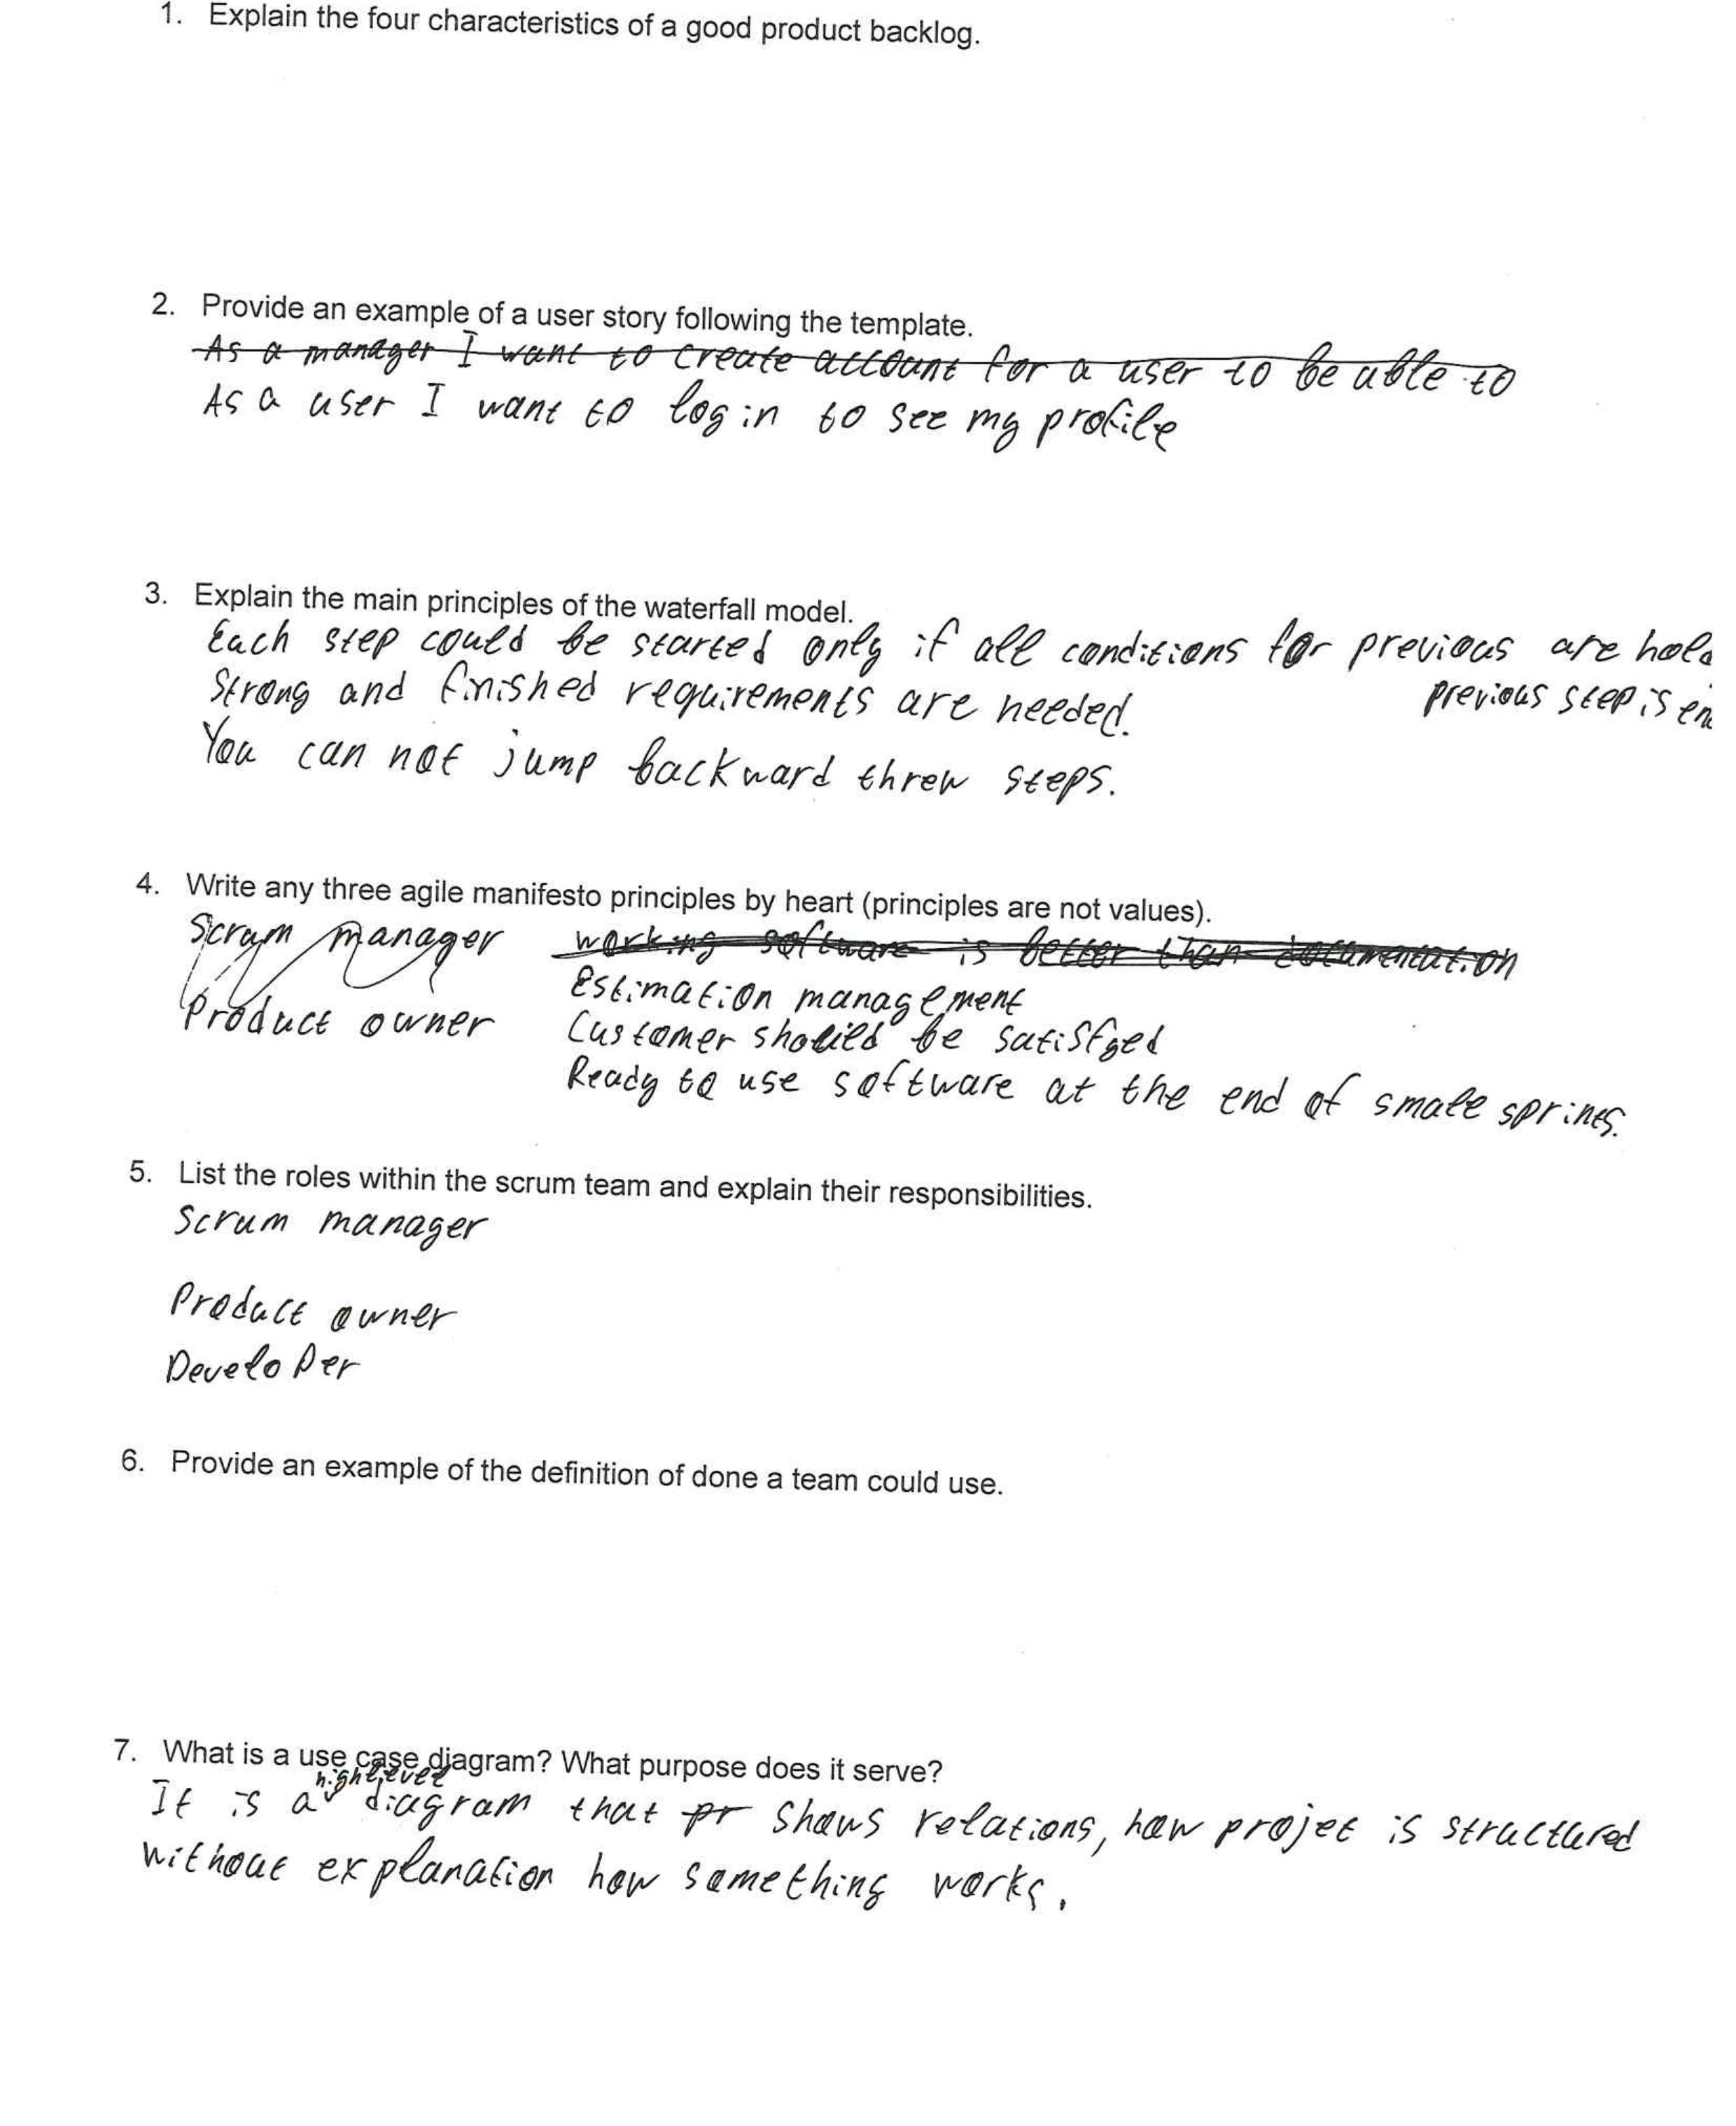 1. Explain the four characteristics of a good product backlog.
2. Provide an example of a user story following the template.
As a manager I want to create account for a user to be able to
As a user I want to log in to see my profile
3. Explain the main principles of the waterfall model.
Each step could be started only if all conditions for previous are hold
previous step is en
Strong and finished requirements are needed.
You can not jump backward threw steps.
4. Write any three agile manifesto principles by heart (principles are not values).
Scrum manager
Product owner
working software is better than documentation
Estimation management
Customer should be satisfyed
Ready to use software at the end of small sprints.
5. List the roles within the scrum team and explain their responsibilities.
Scrum manager
Product owner
Developer
6. Provide an example of the definition of done a team could use.
7. What is a use case diagram? What purpose does it serve?
It is a high level diagram that pr shows relations, how projet is structured
without explanation how something works.